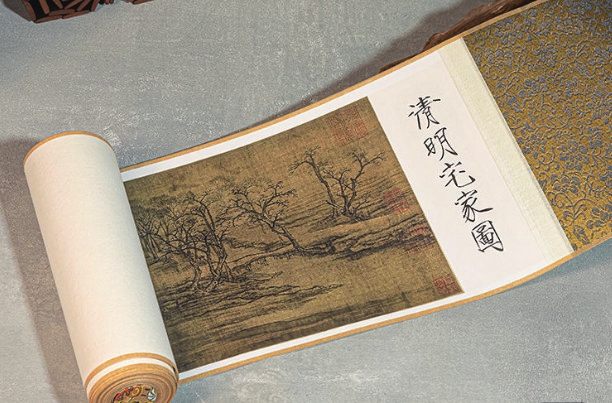 清明宅家圖